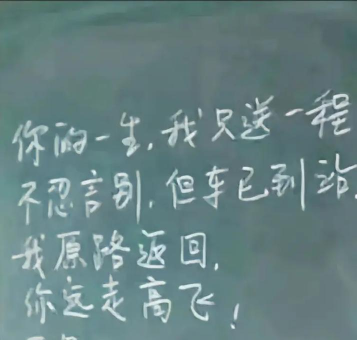 你的一生，我只送一程
不忍言别，但车已到站，
我原路返回，
你远走高飞！